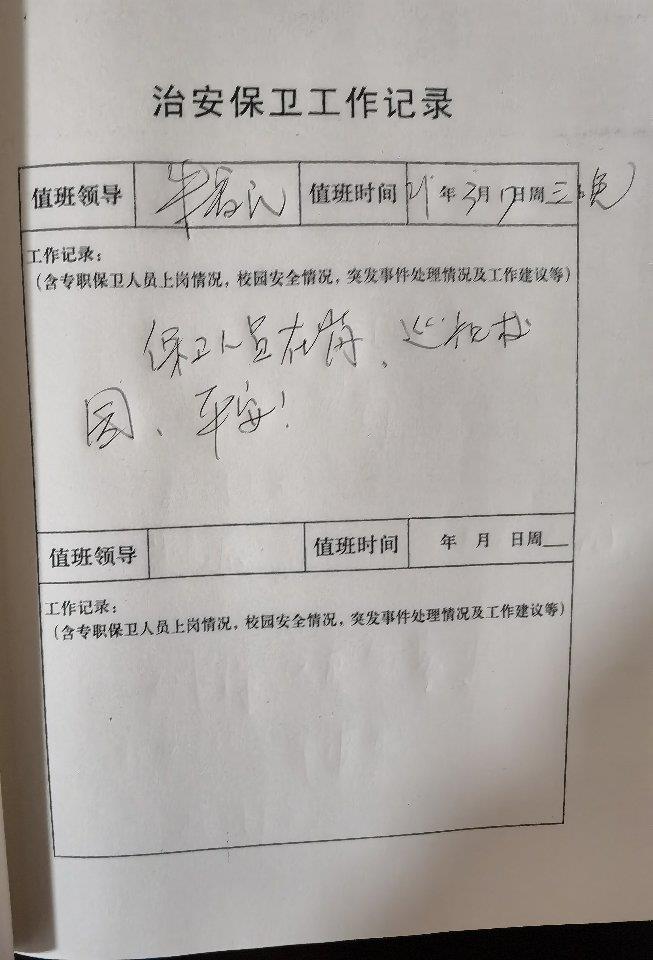 治安保卫工作记录
值班领导 牟 民 值班时间 21年3月17日周三晚
工作记录：
（含专职保卫人员上岗情况，校园安全情况，突发事件处理情况及工作建议等）
保卫人员在岗、巡视校
园、平安！
值班领导 值班时间 年 月 日周__
工作记录：
（含专职保卫人员上岗情况，校园安全情况，突发事件处理情况及工作建议等）